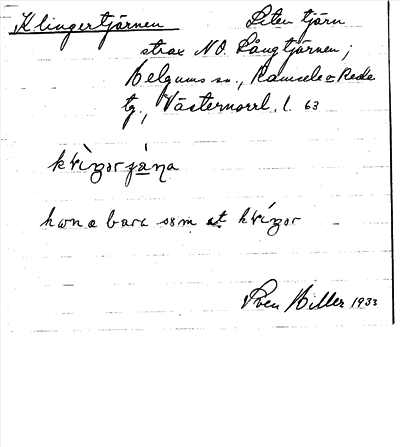 Klingertjärnen Liten tjärn
strax NO. Långtjärnen;
Helgums sn., Ramsele o Resele
tg., Västernorrl. l. 63
krìŋərɟæ̀ṇa
hωn æ bara səm et kríŋər
Sven Hiller 1933